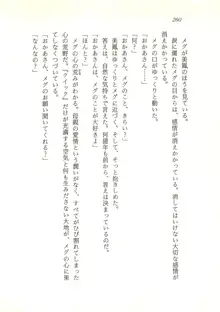 260
メグが美鳳のほうを見ている。
涙に濡れたメグの目からは、感情が消えかかっている。消してはいけない大切な感情が
消えていく。
メグの口がゆっくりと動いた。
「おかあさん」
「何?」
「おかあさん、メグのこと、きらい?」
美鳳はゆっくりとメグに近づいて、そして、そっと抱きしめた。
答えは、自然な気持ちで言えた。何億年も前から、答えは決まっているのだ。
「おかあさんは、メグのことが大好きよ」
「ほんと?」
心の荒野だ。母親の愛情という潤いがなく、すべてがひび割れてしまっている。
「クイック」だけが充満する空気と何も生み出さない大地が、メグの心に果
てしなくつづいている。
「おかあさん、メグのお願い聞いてくれる?」
「なんなの?」